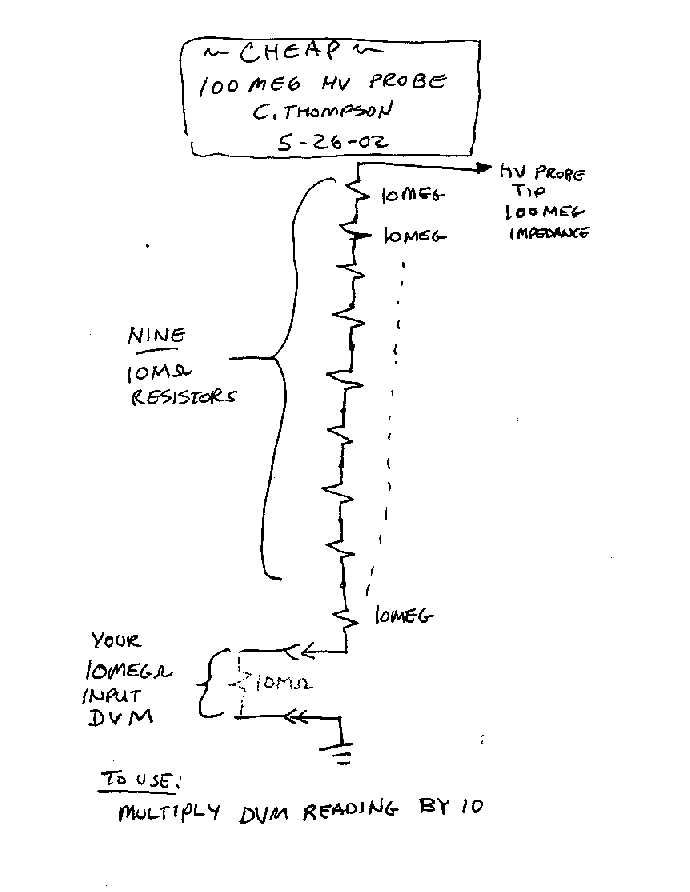 ~ CHEAP ~
100 MEG HV PROBE
C. THOMPSON
5-26-02
HV PROBE
TIP
100MEG
IMPEDANCE
10MEG
10MEG
NINE
10MΩ
RESISTORS
10MEG
YOUR
10MEGΩ
INPUT
DVM
10MΩ
TO USE:
MULTIPLY DVM READING BY 10